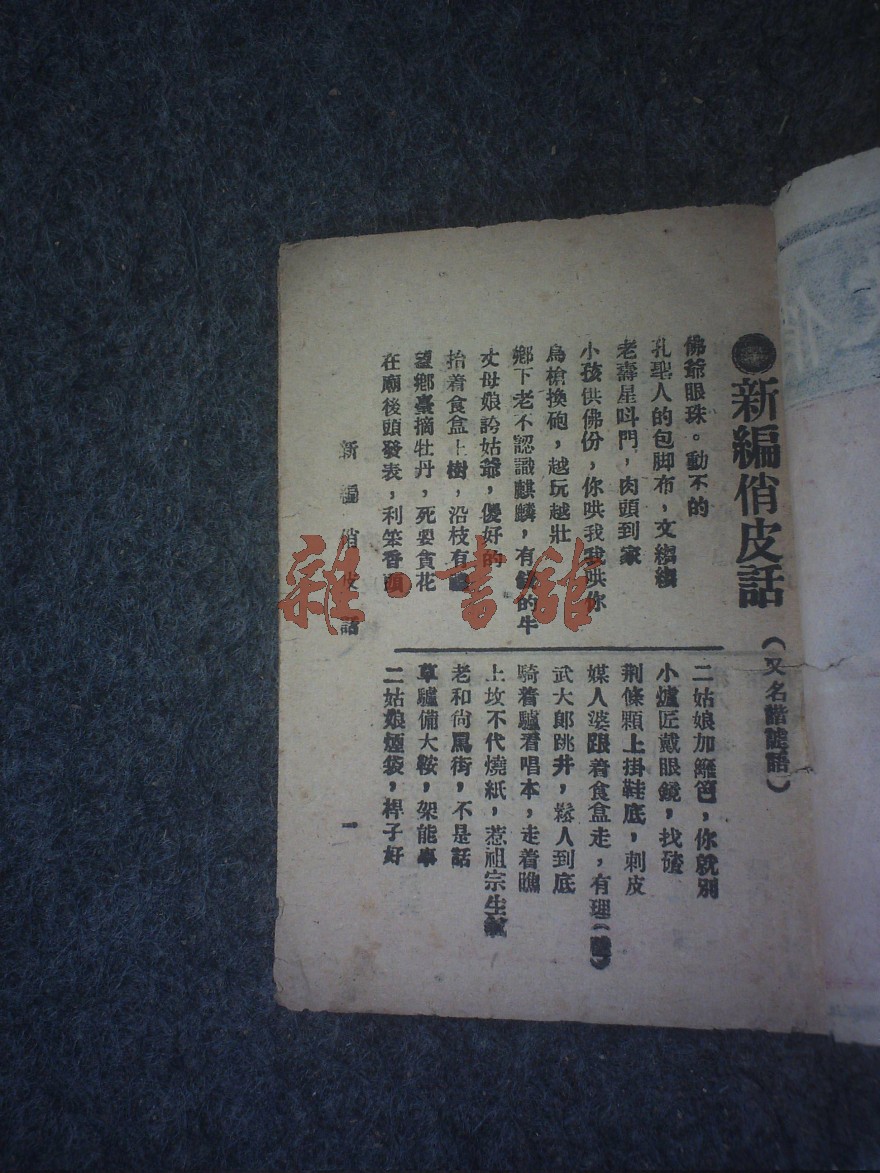 新編俏皮話
(又名諧謔語)
佛爺眼珠。動不的
孔聖人的包脚布，文縐縐
老壽星呌門，肉頭到家
小孩供佛份，你哄我我哄你
鳥槍換砲，越玩越壯
鄉下老不認識麒麟，有錢的牛
丈母娘誇姑爺，儍好的
抬着食盒上樹，沿枝有
望鄉臺摘牡丹，死要貪花
在廟後頭發表，利笨香頭
二姑娘加籬笆，你就別
小爐匠戴眼鏡，找碴
荆條顆上掛鞋底，刺皮
媒人婆跟着食盒走，有理(
武大郎跳井，鬆人到底
騎着驢看唱本，走着瞧
上坟不代燒紙，惹祖宗生氣
老和尚罵街，不是話
草驢備大鞍，架能事
二姑娘煙袋，桿子好
新編俏皮話
一
雜·書館